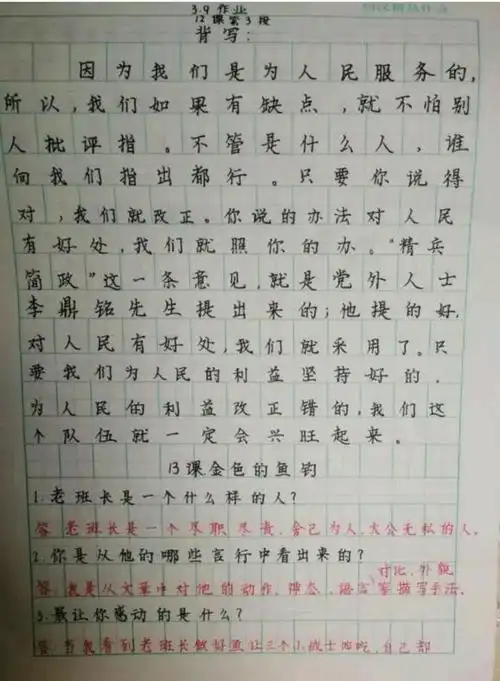 3.9 作业
12 课第 3 段
背写：
因为我们是为人民服务的，
所以，我们如果有缺点，就不怕别
人批评指。不管是什么人，谁
向我们指出都行。只要你说得
对，我们就改正。你说的办法对人民
有好处，我们就照你的办。“精兵
简政”这一条意见，就是党外人士
李鼎铭先生提出来的；他提的好，
对人民有好处，我们就采用了。只
要我们为人民的利益坚持好的，
为人民的利益改正错的，我们这
个队伍就一定会兴旺起来。
13课金色的鱼钩
1.老班长是一个什么样的人？
答 老班长是一个尽职尽责，舍己为人，大公无私的人。
2.你是从他的哪些言行中看出来的？
对比，外貌
答 我是从文章中对他的动作，神态，语言等描写手法。
3.最让你感动的是什么？
答 当我看到老班长做好鱼让三个小战士吃，自己却